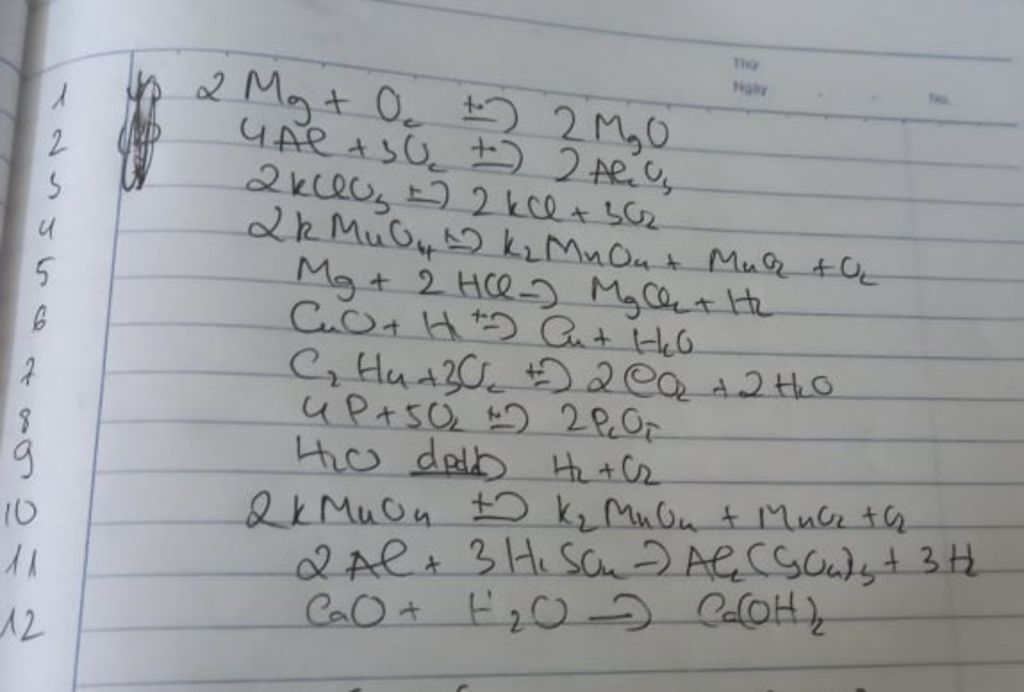 Thứ
Ngày
No.
1 2Mg + O₂ t°→ 2MgO
2 4Al + 3O₂ t°→ 2Al₂O₃
3 2KClO₃ t°→ 2KCl + 3O₂
4 2KMnO₄ t°→ K₂MnO₄ + MnO₂ + O₂
5 Mg + 2HCl → MgCl₂ + H₂
6 CuO + H t°→ Cu + H₂O
7 C₂H₄ + 3O₂ t°→ 2CO₂ + 2H₂O
8 4P + 5O₂ t°→ 2P₂O₅
9 H₂O đpdd→ H₂ + O₂
10 2KMnO₄ t°→ K₂MnO₄ + MnO₂ + O₂
11 2Al + 3H₂SO₄ → Al₂(SO₄)₃ + 3H₂
12 CaO + H₂O → Ca(OH)₂